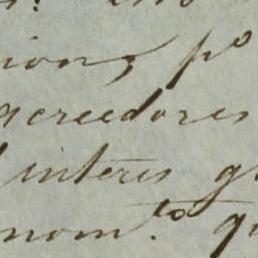 ion; po
acreedores
interes g
nom.to q